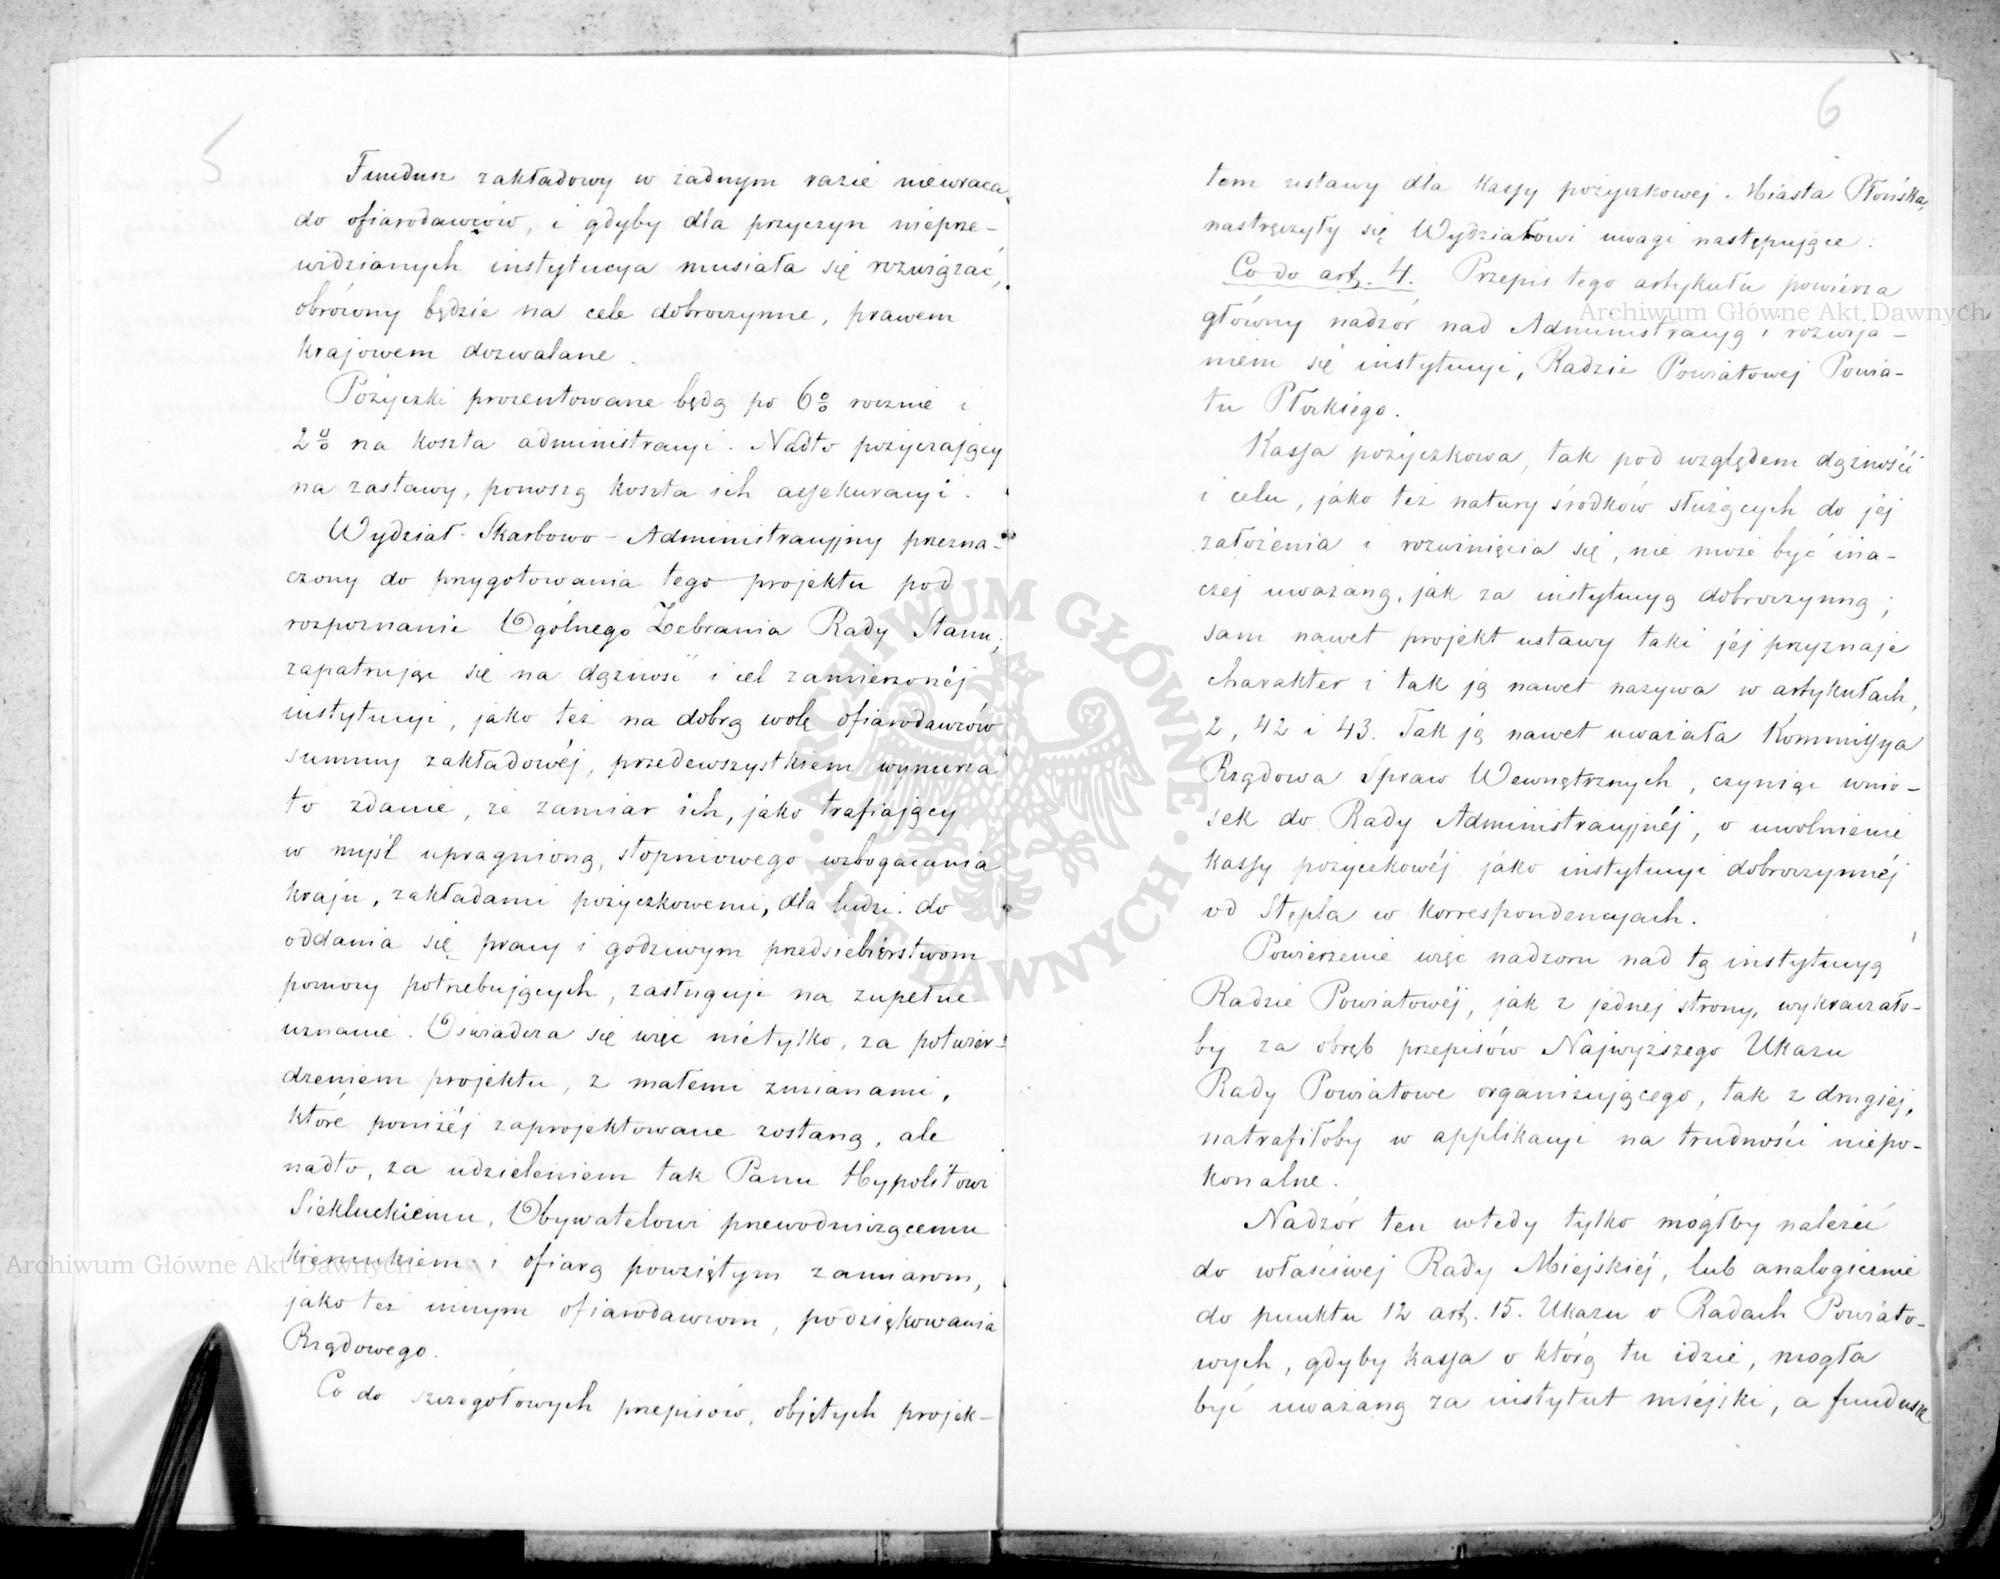 5
Fundusz zakładowy w żadnym razie niewraca
do ofiarodawców, i gdyby dla przyczyn nieprze-
widzianych instytucya musiała się rozwiązać,
obrócony będzie na cele dobroczynne, prawem
krajowem dozwalane.
Pożyczki procentowane będą po 6% rocznie i
2% na koszta administracyi. Nadto pożyczający
na zastawy, ponoszą koszta ich assekuracyi.
Wydział Skarbowo-Administracyjny przezna-
czony do przygotowania tego projektu pod
rozpoznanie Ogólnego Zebrania Rady Stanu,
zapatrując się na dążność i cel zamierzonéj
instytucyi, jako też na dobrą wolę ofiarodawców
summy zakładowéj, przedewszystkiem wynurza
to zdanie, że zamiar ich, jako trafiający
w myśl upragnioną, stopniowego wzbogacania
kraju, zakładami pożyczkowemi, dla ludzi do
oddania się pracy i godziwym przedsiebiérstwom
pomocy potrzebujących, zasługuje na zupełne
uznanie. Oświadcza się więc niétylko, za potwier-
dzeniem projektu, z małemi zmianami,
któré poniżéj zaprojektowane zostaną, ale
nadto, za udzieleniem tak Panu Hypolitowi
Siekluckiemu, Obywatelowi przewodniczącemu
kierunkiem i ofiarą powziętym zamiarom,
jako też innym ofiarodawcom, podziękowania
Rządowego.
Co do szczegółowych przepisów, objętych projek-
6
tem ustawy dla kassy pożyczkowej Miasta Płońska,
nastręczyły się Wydziałowi uwagi następujące:
Co do art. 4. Przepis tego artykułu powierza
główny nadzór nad Administracyą i rozwija-
niem się instytucyi, Radzie Powiatowej Powia-
tu Płockiégo.
Kassa pożyczkowa, tak pod względem dążności
i celu, jako też natury środków służących do jéj
założenia i rozwinięcia się, nie może być ina-
czéj uważaną, jak za instytucyą dobroczynną;
sam nawet projekt ustawy taki jéj przyznaje
charakter i tak ją nawet nazywa w artykułach,
2, 42 i 43. Tak ją nawet uważała Kommissya
Rządowa Spraw Wewnętrznych, czyniąc wnio-
sek do Rady Administracyjnéj, o uwolnienie
kassy pożyczkowéj jako instytucyi dobroczynnéj
od stępla w korrespondencyach.
Powierzenie więc nadzoru nad tą instytucyą
Radzie Powiatowéj, jak z jednej strony, wykraczało-
by za obręb przepisów Najwyższego Ukazu
Rady Powiatowe organizującego, tak z drugiej,
natrafiłoby w applikacyi na trudności niepo-
konalne.
Nadzór ten wtedy tylko mógłby należéć
do właściwej Rady Miejskiéj, lub analogicznie
do punktu 12 art. 15. Ukazu o Radach Powiato-
wych, gdyby kassa o którą tu idzie, mogła
być uważaną za instytut miéjski, a fundusze
Archiwum Główne Akt Dawnych
Archiwum Główne Akt Dawnych
ARCHIWUM GŁÓWNE AKT DAWNYCH